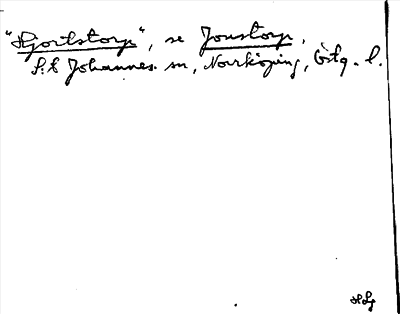 "Hjortstorp", se Jonstorp,
S:t Johannes sn, Norrköping, Östg. l.